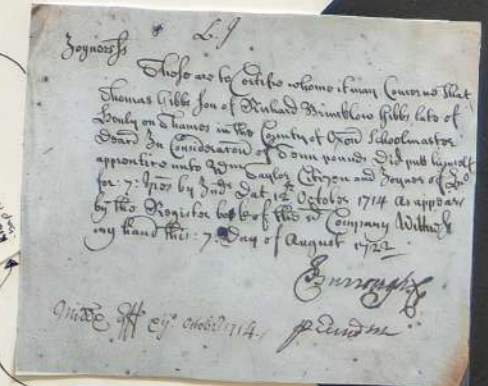 L. J
Joyners ss
These are to Certifie whome it may Concerne That
Thomas Gibbs Son of Richard Brimblow Gibbs late of
Henly on Thames in the County of Oxon Schoolmaster
Decd In Consideration of Tenn pounds Did put himself
apprentice unto Edw Saylor Citizen and Joyner of Lond
for :7: yeres by Indre Dat 12th October 1714 As appears
by the Register booke of the sd Company Witness
my hand this :7: Day of August 1722
Burrough
Octobr 1714.